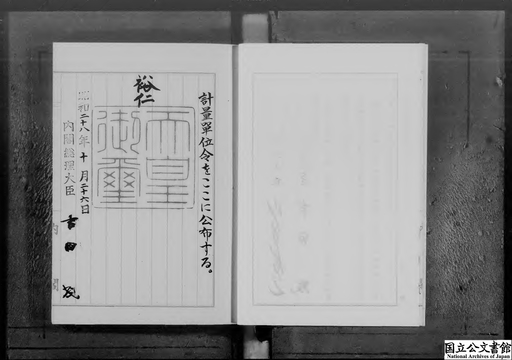 計量單位令をここに公布する。
裕仁
天皇御璽
昭和二十八年十月二十六日
内閣総理大臣 吉田茂
国立公文書館
National Archives of Japan